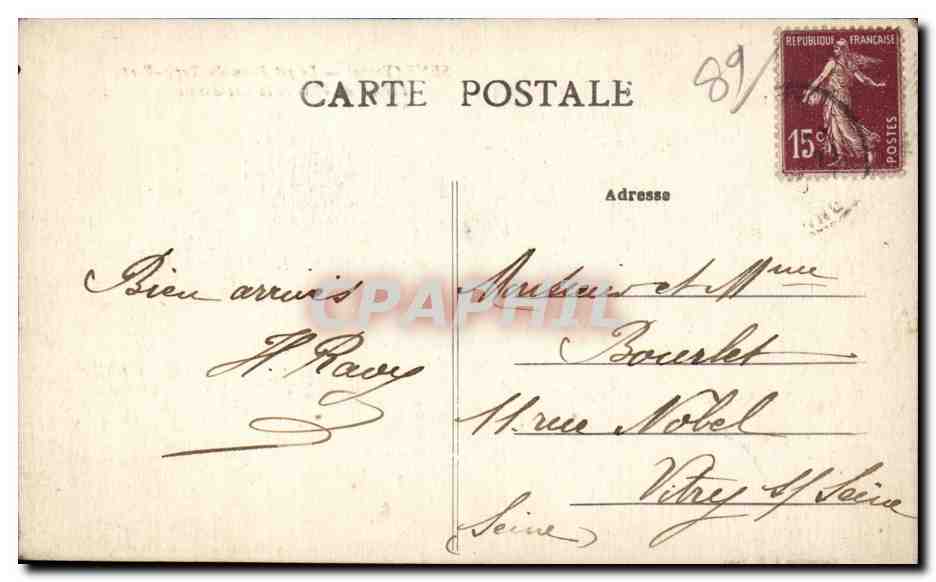 CARTE POSTALE
89/
REPUBLIQUE FRANÇAISE
15c
POSTES
Adresse
Bien arrivés
H. Ravy
Monsieur et Mme
Bourlet
11 rue Nobel
Vitry s/ Seine
(Seine)
CPAPHIL